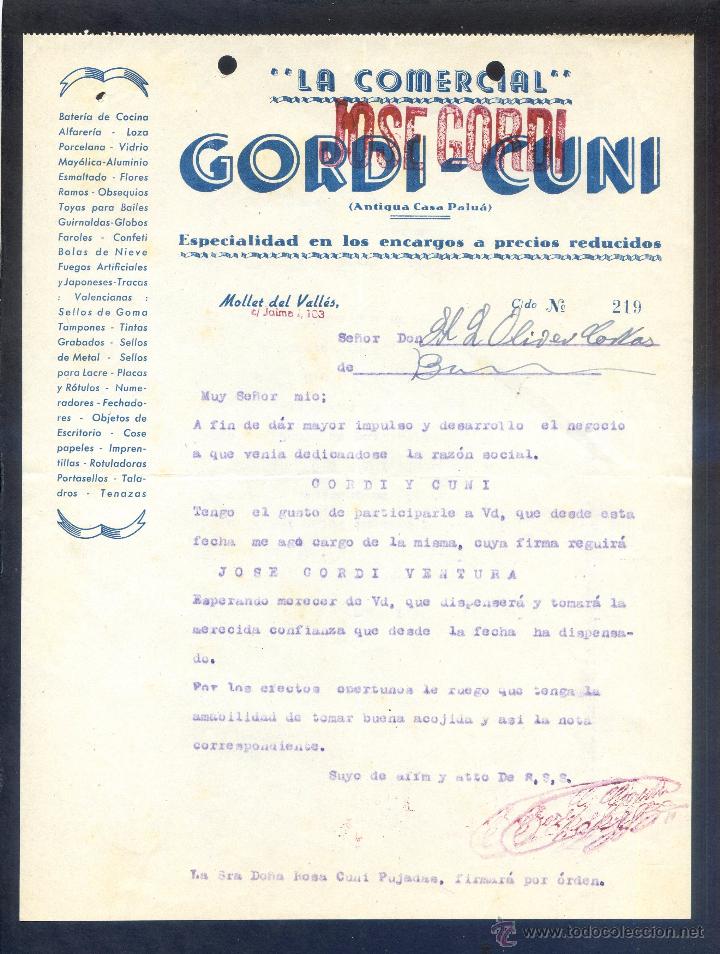 "LA COMERCIAL"
JOSE GORDI
GORDI - CUNI
(Antigua Casa Paluá)
Especialidad en los encargos a precios reducidos
Batería de Cocina
Alfarería - Loza
Porcelana - Vidrio
Mayólica-Aluminio
Esmaltado - Flores
Ramos - Obsequios
Toyas para Bailes
Guirnaldas-Globos
Faroles - Confeti
Bolas de Nieve
Fuegos Artificiales
y Japoneses-Tracas
: Valencianas :
Sellos de Goma
Tampones - Tintas
Grabados - Sellos
de Metal - Sellos
para Lacre - Placas
y Rótulos - Nume-
radores - Fechado-
res - Objetos de
Escritorio - Cose
papeles - Impren-
tillas - Rotuladoras
Portasellos - Tala-
dros - Tenazas
Mollet del Vallés,
c/ Jaime I, 103
C/do Nº 219
Señor Don
de
Muy Señor mio;
A fin de dár mayor impulso y desarrollo el negocio
a que venia dedicandose la razón social.
GORDI Y CUNI
Tengo el gusto de participarle a Vd, que desde esta
fecha me ago cargo de la misma, cuya firma reguirá
JOSE GORDI VENTURA
Esperando merecer de Vd, que dispenserá y tomará la
merecida confianza que desde la fecha ha dispensa-
do.
Por los efectos opertunos le ruego que tenga la
amabilidad de tomar buena acojida y asi la nota
correspondiente.
Suyo de afim y atto De S,S,S.
La Sra Doña Rosa Cuni Pujadas, firmará por órden.
www.todocoleccion.net